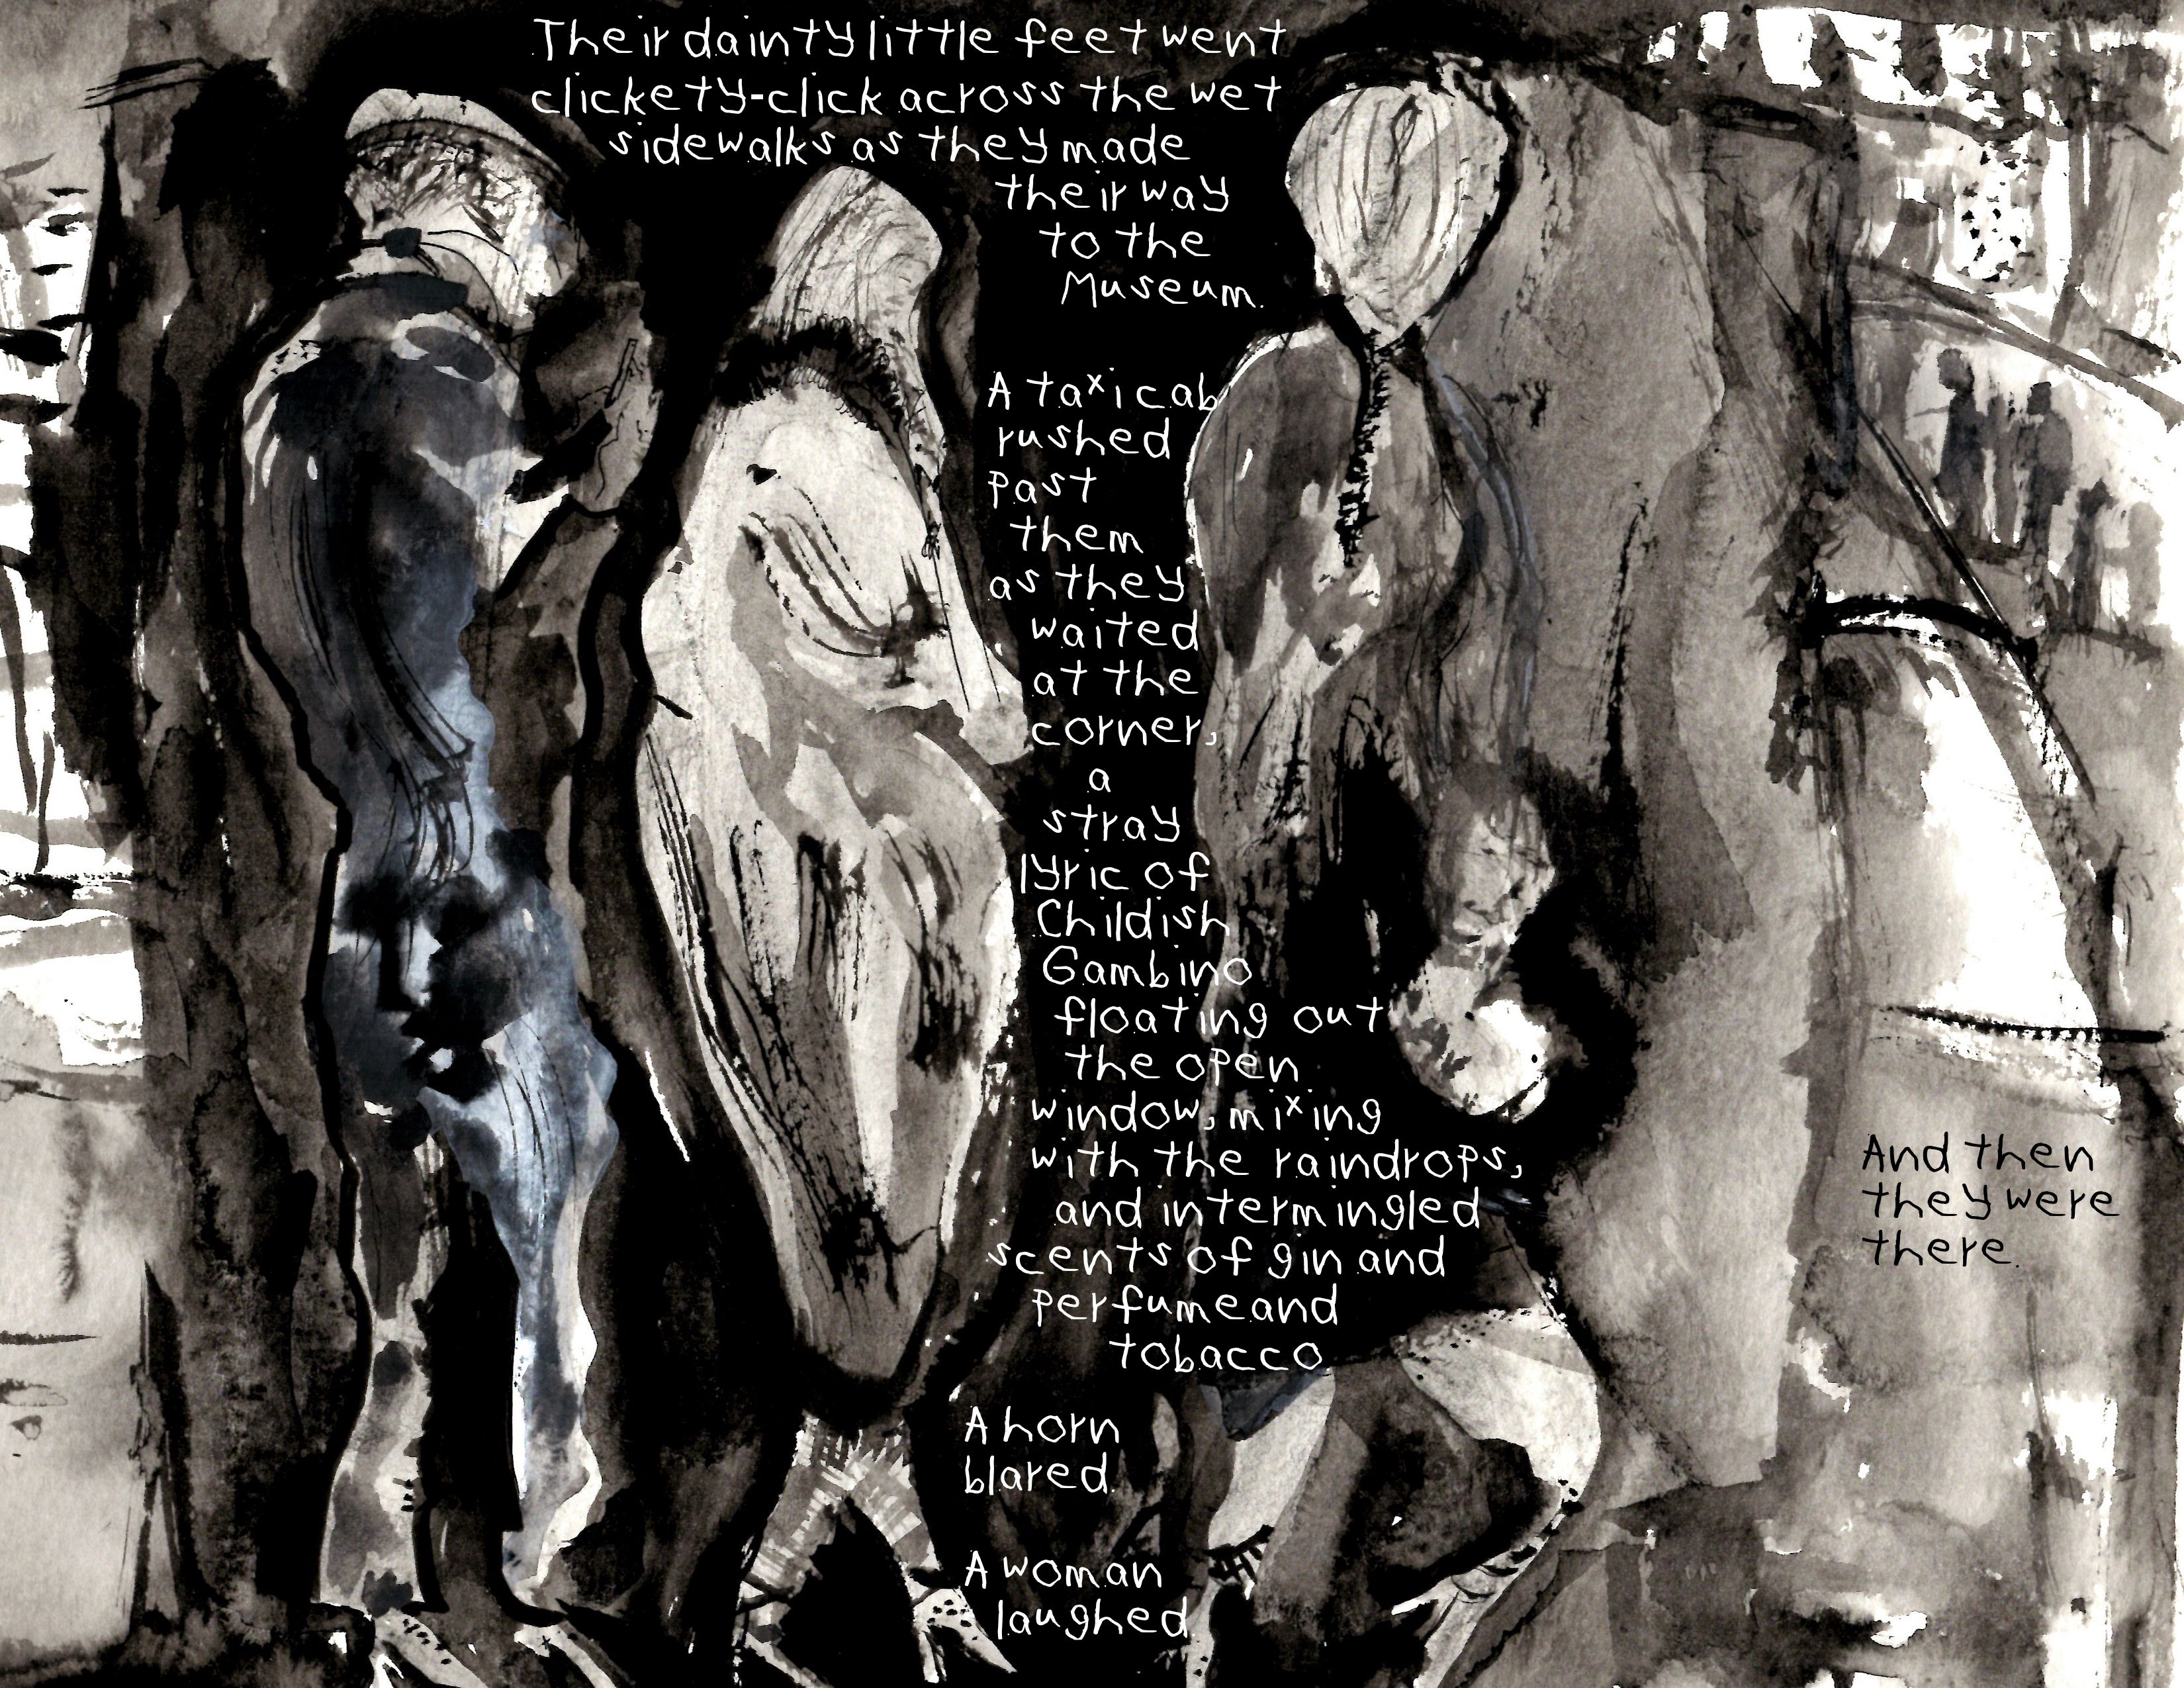 Their dainty little feet went
clickety-click across the wet
sidewalks as they made
their way
to the
Museum.
A taxicab
rushed
past
them
as they
waited
at the
corner,
a
stray
lyric of
Childish
Gambino
floating out
the open
window, mixing
with the raindrops,
and intermingled
scents of gin and
perfume and
tobacco.
A horn
blared.
A woman
laughed.
And then
they were
there.